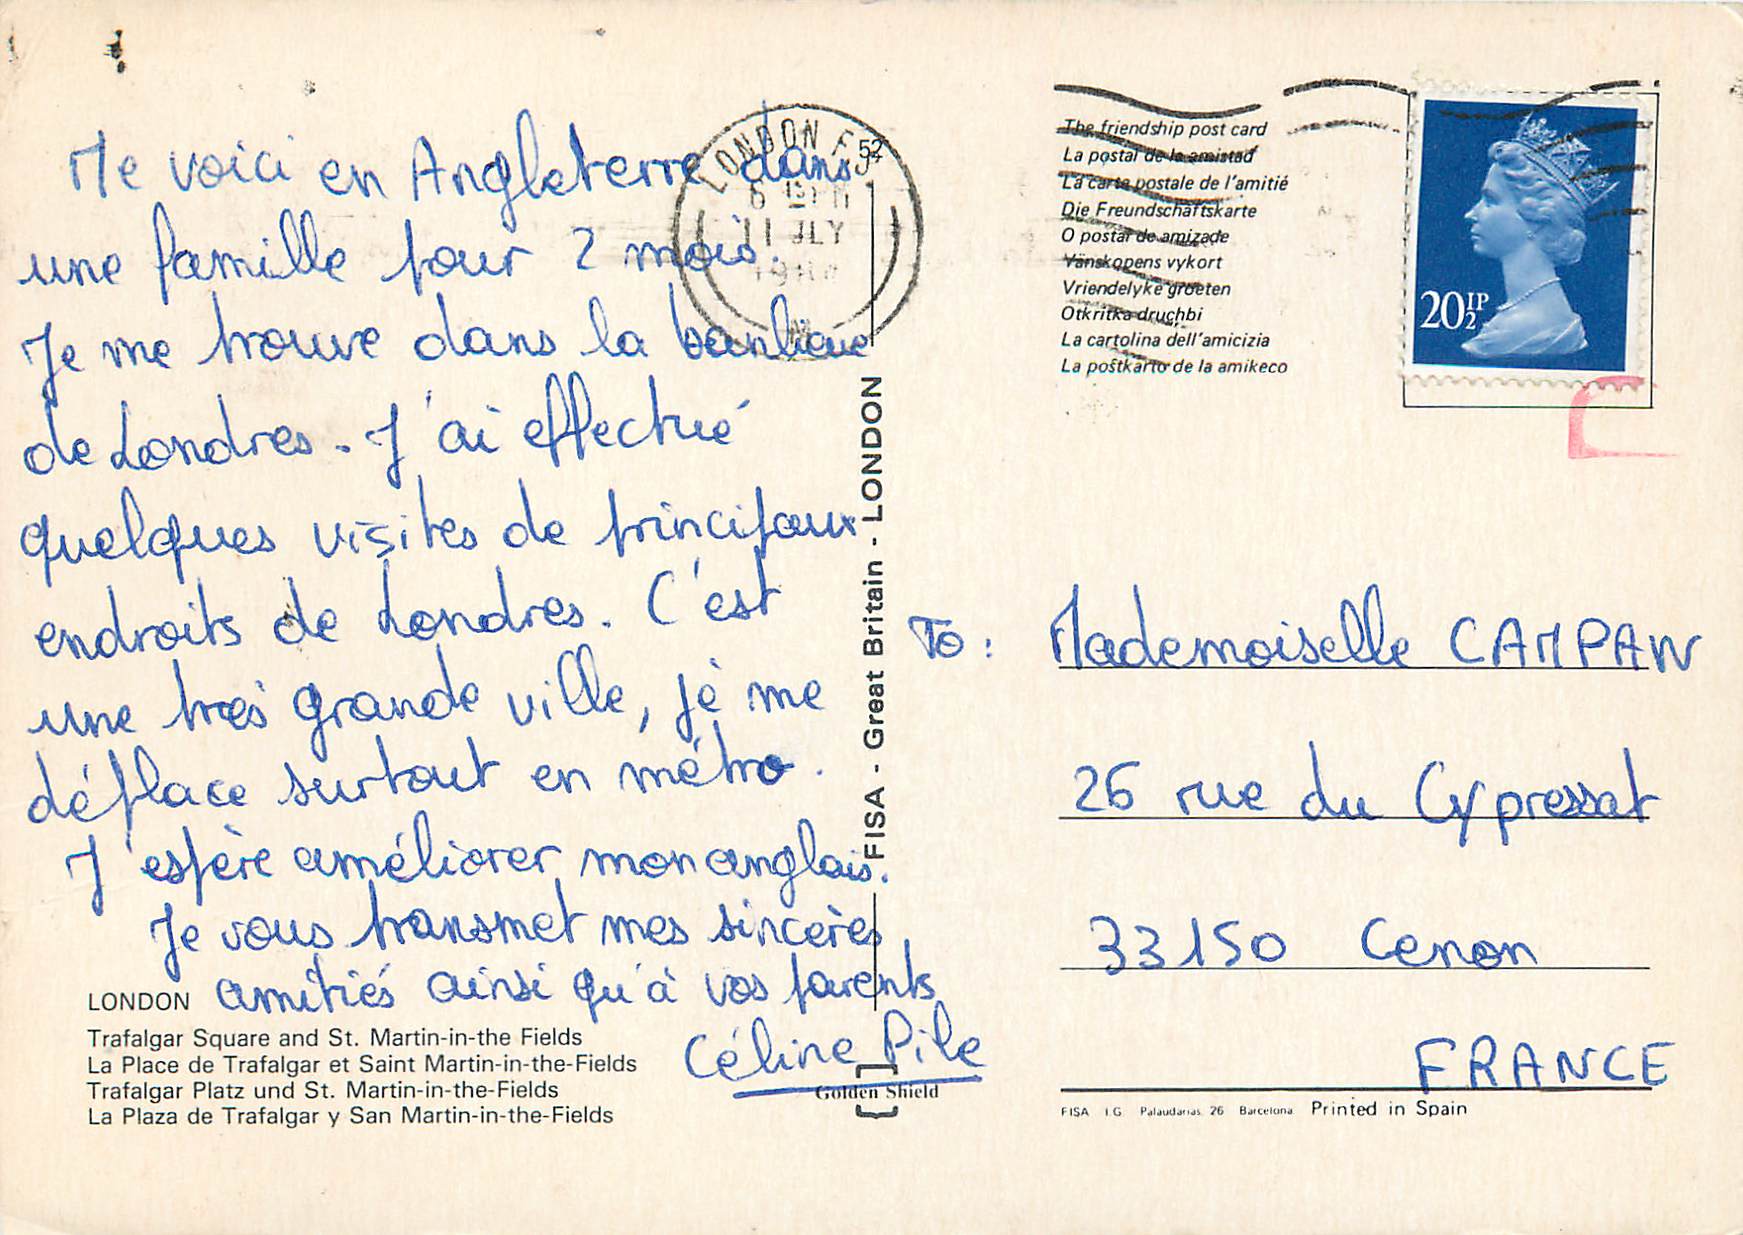 Me voici en Angleterre dans
une famille pour 2 mois.
Je me trouve dans la banlieue
de Londres. J'ai effectué
quelques visites de principaux
endroits de Londres. C'est
une très grande ville, je me
déplace surtout en métro.
J'espère améliorer mon anglais.
Je vous transmet mes sincères
amitiés ainsi qu'à vos parents
Céline Pile
LONDON
Trafalgar Square and St. Martin-in-the Fields
La Place de Trafalgar et Saint Martin-in-the-Fields
Trafalgar Platz und St. Martin-in-the-Fields
La Plaza de Trafalgar y San Martin-in-the-Fields
Golden Shield
FISA - Great Britain - LONDON
52
LONDON
11 JLY
The friendship post card
La postal de la amistad
La carte postale de l'amitié
Die Freundschaftskarte
O postal de amizade
Vänskopens vykort
Vriendelyke groeten
Otkritka druchbi
La cartolina dell'amicizia
La poŝtkarto de la amikeco
20½P
To : Mademoiselle CAMPAN
26 rue du Cypressat
33150 Cenon
FRANCE
FISA I.G. Palaudarias, 26 Barcelona Printed in Spain